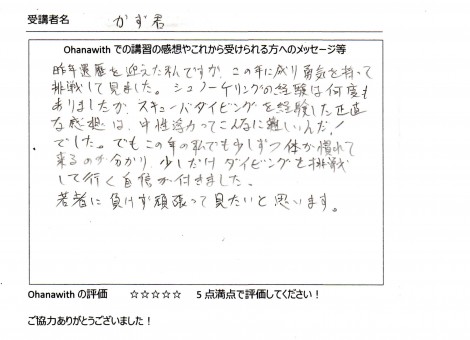 受講者名 かず君
Ohanawith での講習の感想やこれから受けられる方へのメッセージ等
昨年還暦を迎えた私ですが、この年に成り勇気を持って
挑戦して見ました。シュノーケリングの経験は何度も
ありましたが、スキューバダイビングを経験した正直
な感想は、中性浮力ってこんなに難しいんだ！
でした。でもこの年の私でも少しずつ体が慣れて
来るのが分かり、少しだけダイビングを挑戦
して行く自信が付きました。
若者に負けず頑張って見たいと思います。
Ohanawith の評価 ☆☆☆☆☆ 5 点満点で評価してください！
ご協力ありがとうございました！